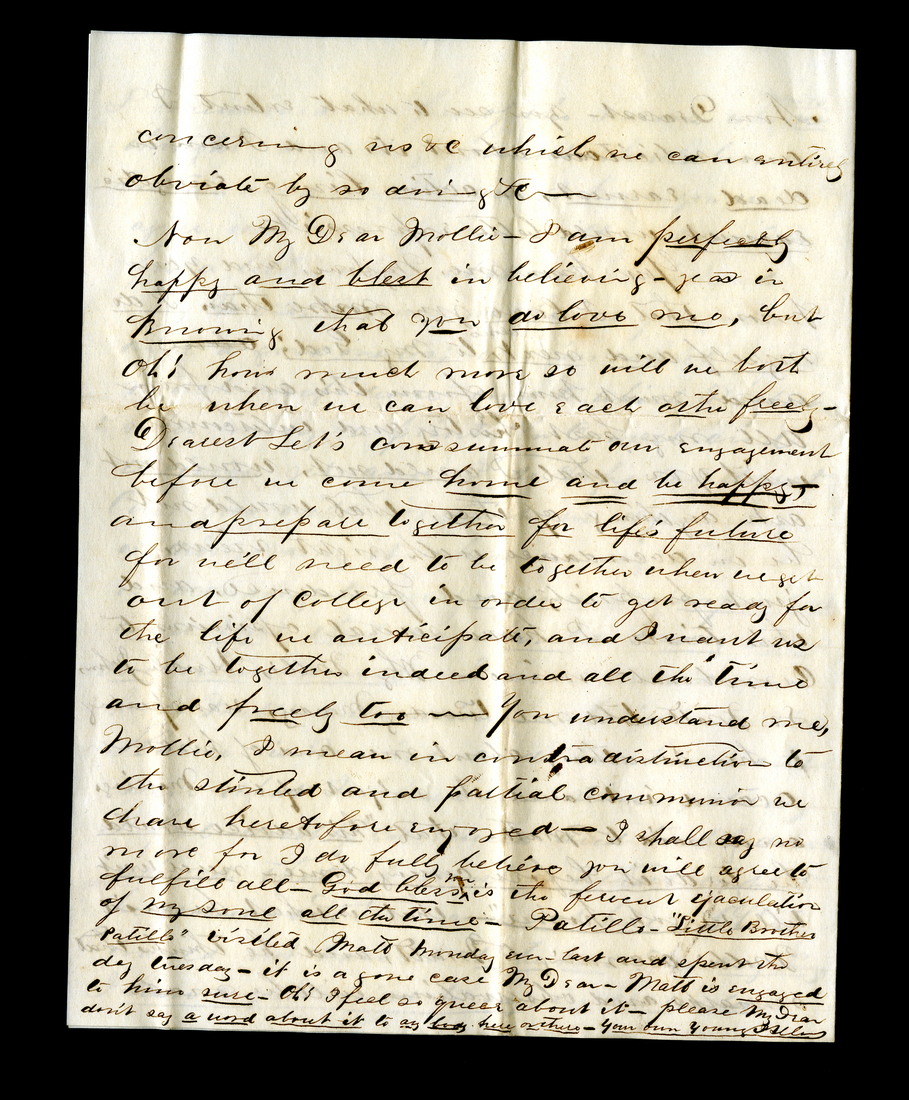 concerning us &c which we can entirely
obviate by so doing &c—
Now My Dear Mollie— I am perfectly
happy and blest in believing— yea in
knowing that you do love me, but
Oh! how much more so will we both
be when we can love each othe freely—
Dearest Let's consummate our engagement
before we come home and be happy—
and prepare together for life's future
for we'll need to be together when we get
out of College in order to get ready for
the life we anticipate, and I want us
to be together indeed and all the time
and freely too— You understand me,
Mollie, I mean in contradistinction to
the stinted and partial communion we
have heretofore enjoyed— I shall say no
more for I do fully believe you will agree to
fulfill all— God bless you is the fervent ejaculation
of my soul all the time— Patillo— "Little Brother
Patillo" visited Matt Monday eve— last and spent the
day tuesday— it is a gone case My Dear— Matt is engaged
to him sure— Oh! I feel so queer about it— please My Dear
don't say a word about it to any here or there— Your own Young